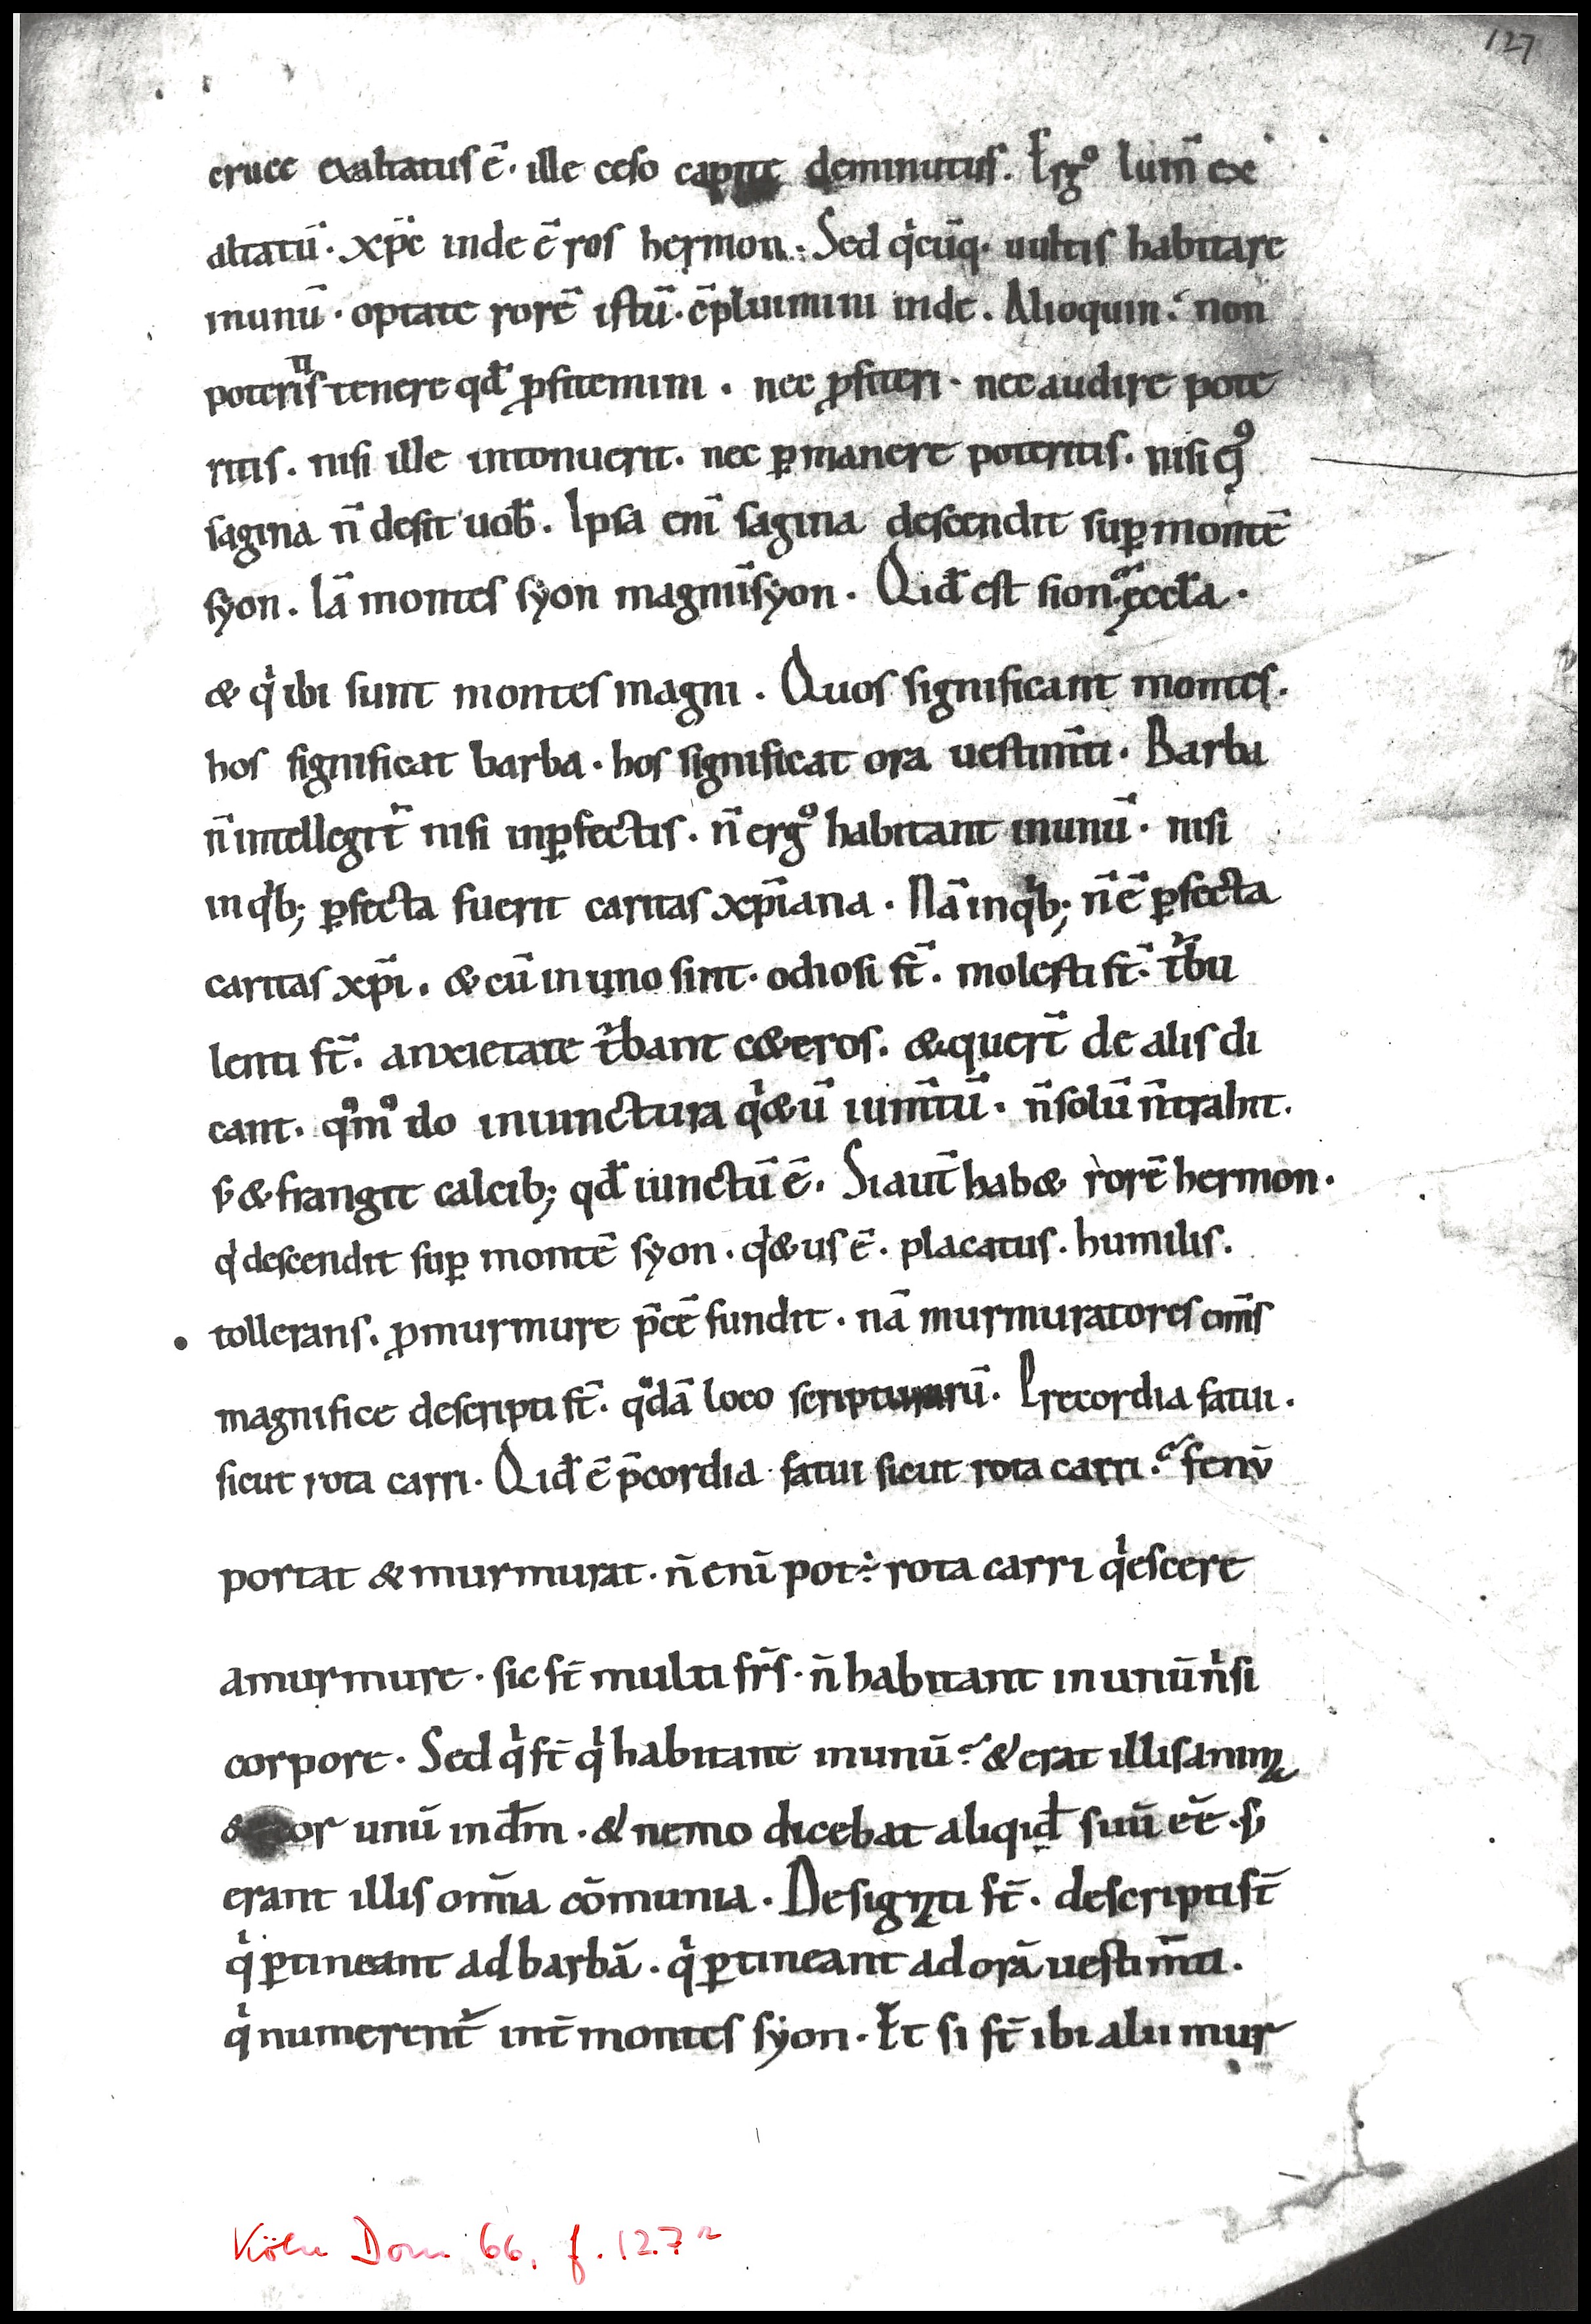 127
cruce exaltatus ē· ille ceso capite deminutus. Ergͦ lum̄ ex
altatū· xp̄c inde ē ros hermon. Sed qͥcūq· uultis habitare
inunū· optate rorē istū· c̄pluimini inde. Alioquin: non
poteritis tenere qđ ꝓfitemini. nec ꝓfiteri· nec audire pote
ritis. nisi ille intonuerit. nec ꝑmanere poteritis. nisi eiꝰ
sagina n̄ desit uob̄. Ipsa eni̅ sagina descendit suꝑ montē
syon. Iā montes syon magnū syon. Qid̄ est sion: ęccl̄a·
& qͥ ibi sunt montes magni. Quos significant montes.
hos significat barba· hos significat ora uestim̄ti. Barba
n̄ intellegit̄ nisi inꝑfectis. n̄ ergͦ habitant inunū· nisi
inqͥb; ꝑfecta fuerit caritas xp̄iana. Nā inqͥb; n̄ ē ꝑfecta
caritas xp̄i. & cū in uno sint· odiosi st̄. molesti st̄. t̄bu
lenti st̄. anxietate t̄bant c&eros. & quert̄ de alis di
cant. qͦmͦ do iniunctura qͥ&ū ium̄tū. n̄ solū n̄ trahit.
ꞩ & frangit calcib; qđ iunctū ē. Si aut̄ hab& rorē hermon.
qͥ descendit suꝑ montē syon. qͥ&us ē. placatus. humilis.
tollerans. ꝓmurmure p̄cē fundit. nā murmuratores om̄s
magnifice descripti st̄. qͦdā loco scripturarū. Precordia fatui.
sicut rota carri. Qid̄ ē p̄cordia fatui sicut rota carri: fenū
portat & murmurat. n̄ eni̅ pot: rota carri qͥescere
amurmure. sic st̄ multi fr̄s. n̄ habitant inunū nͥsi
corpore. Sed qͥ st̄ qͥ habitant inunū: & erat illis anima
& cor unū ind̄m. & nemo dicebat aliqid̄ suū eē. ꞩ
erant illis om̄ia cōmunia. Designati st̄. descripti st̄
qͥ ꝑtineant ad barbā. qͥ ꝑtineant ad orā uestim̄ti.
qͥ numerent̄ int̄ montes syon. Et si st̄ ibi alii mur
Köln Dom 66, f. 127r